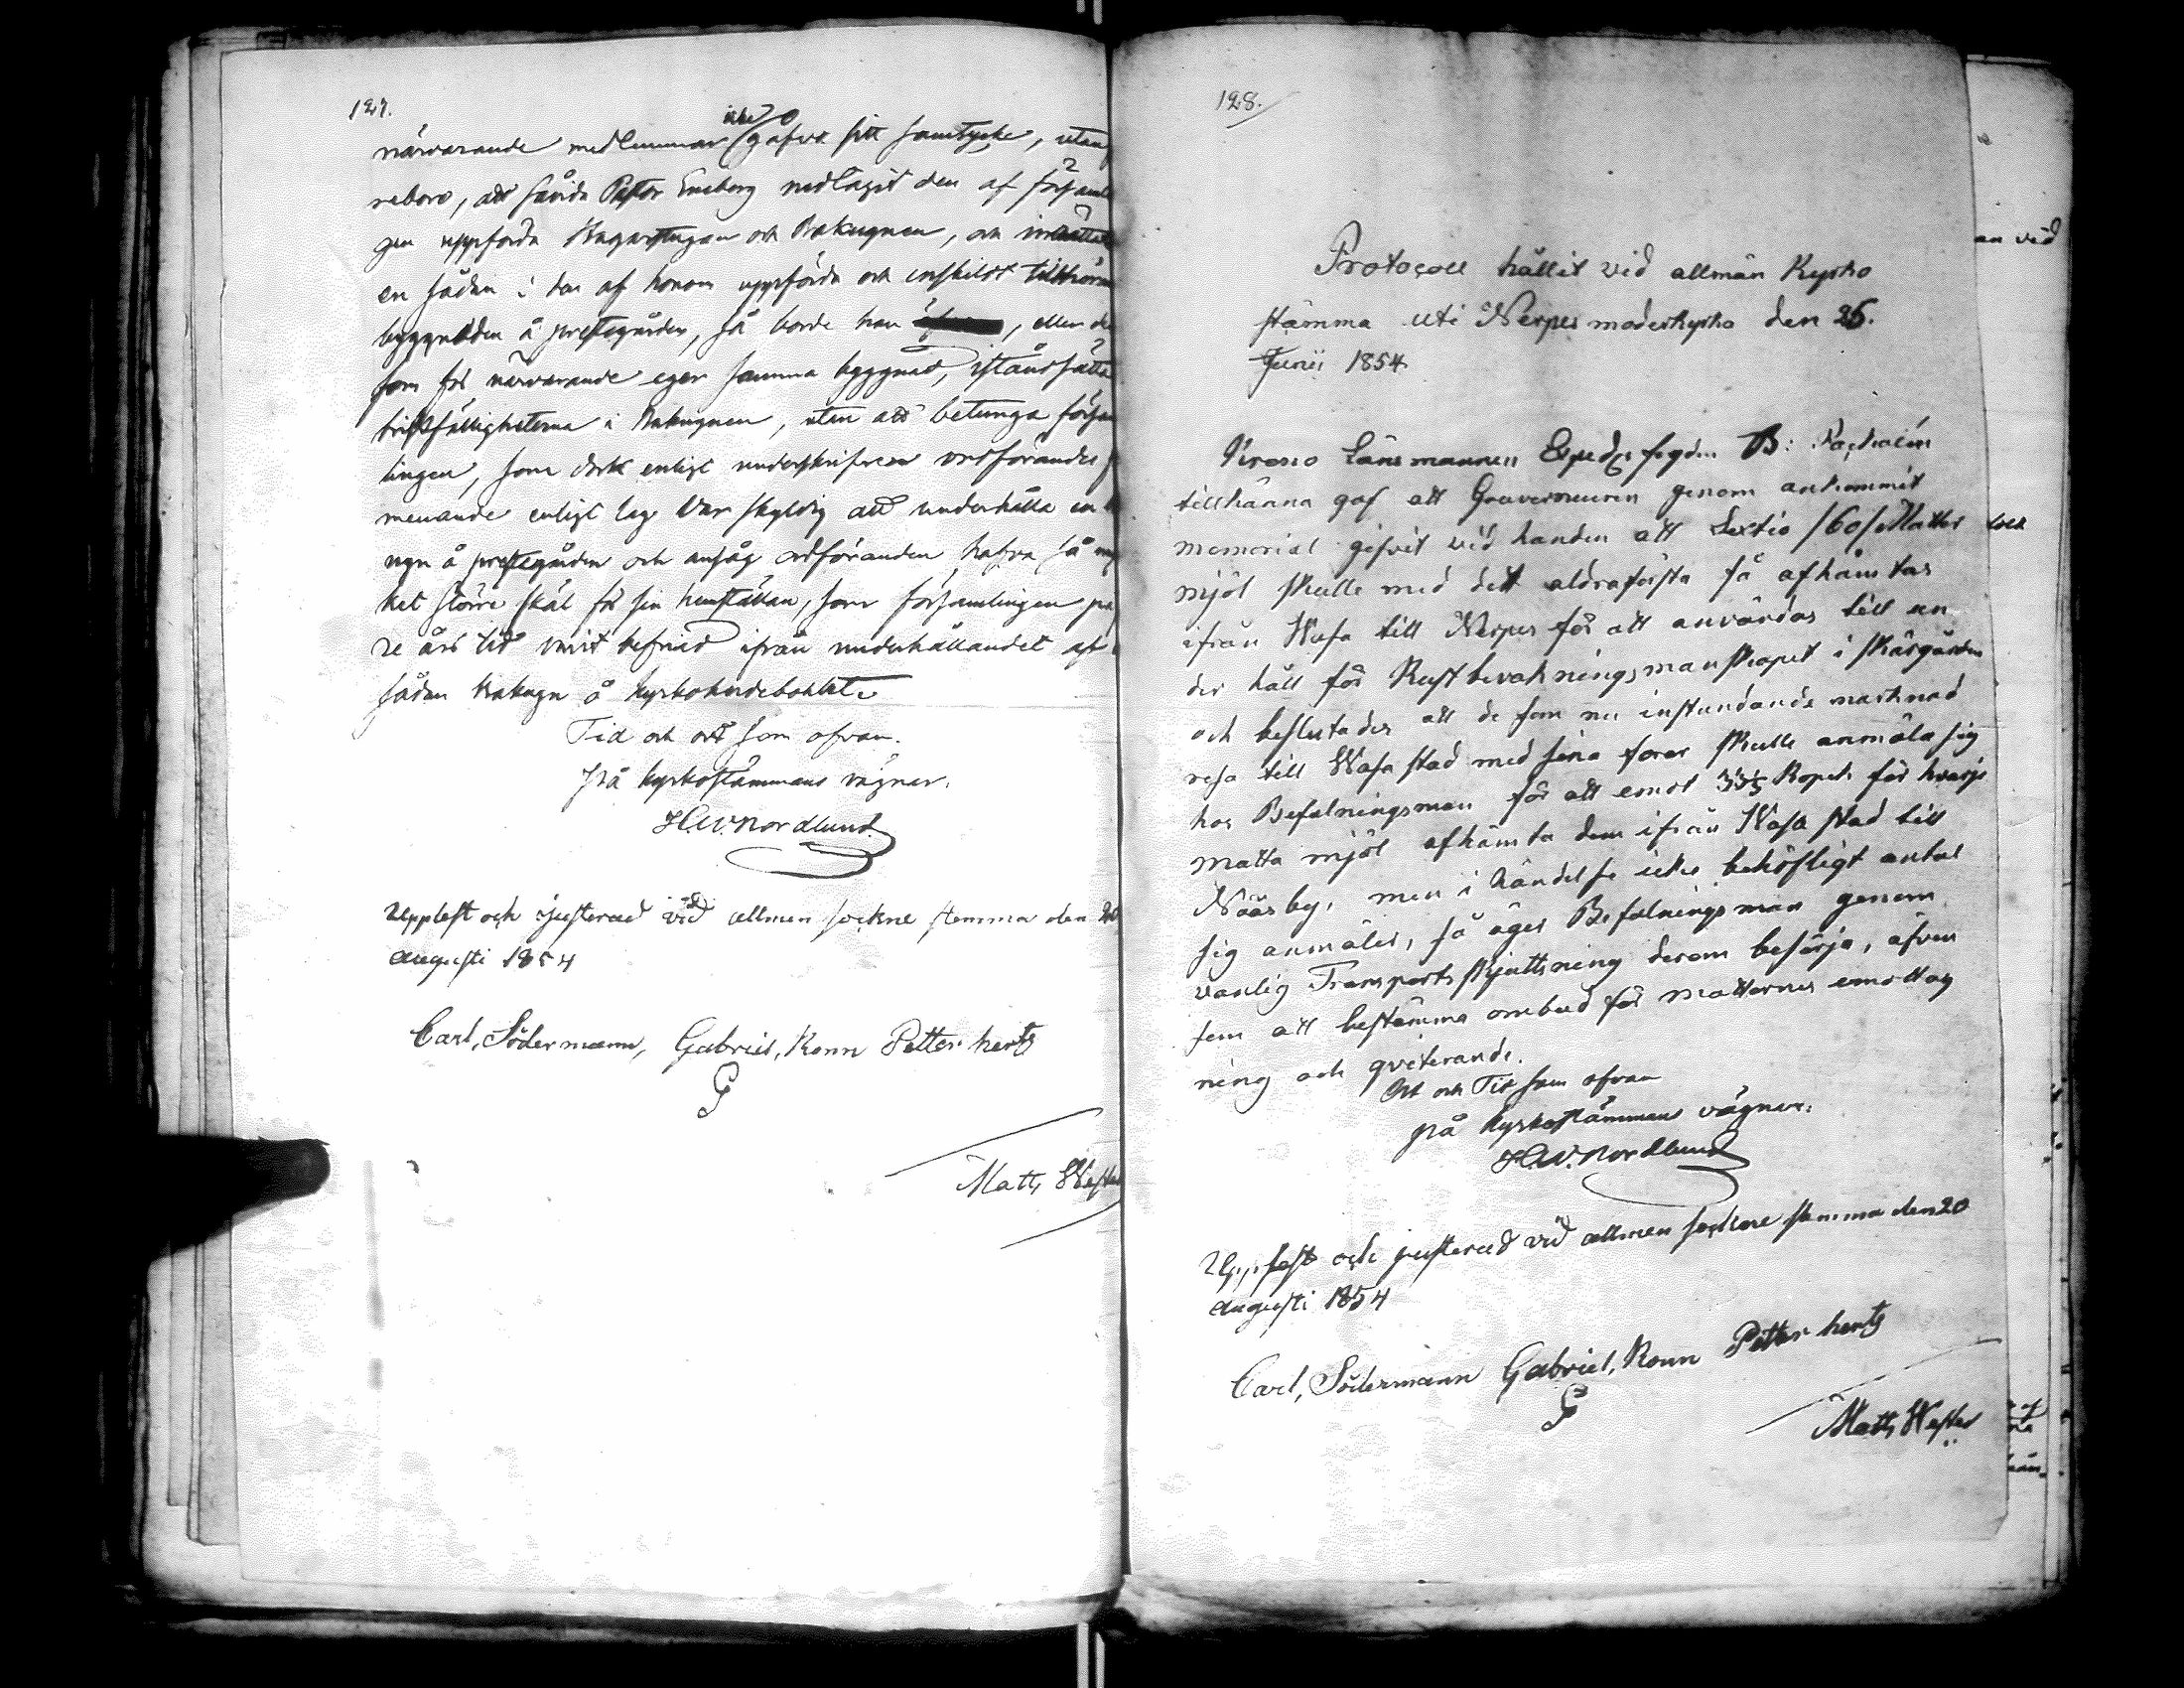 127.
närvarande medlemmar icke gåfvo sitt samtycke, utan
, att såvida Pastor Eneberg nedlagit den af församl
gen uppförda Bagarstugan och Bakugnen, och inrättat
en sådan i den af honom uppförda och enskildt tillhöra
byggnaden å prestegården, så borde han , eller de
som för närvarande eger samma byggnad, iståndsätta
bristfälligheterna i Bakugnen, utan att betunga försam
lingen, som dock enligt undertecknad ordförandes
menande enligt lag var skyldig att underhålla en
ugn å prestegården och ansåg ordföranden hafva så my
ket större skäl för sin hemställan, som församlingen på
re års tid varit befriad ifrån underhållandet af
sådan bakugn å kyrkoherdebohlet.
Tid och ort som ofvan.
På kyrkostämmans vägnar.
H.W. Nordlund.
Upplest och justerad vid allmen sockne stemma den 20
augusti 1854
Carl, Södermann, Gabriel, Ronn Petter herts
G
Matts Wester
128.
Protocoll hållit vid allmän Kyrko
stämma uti Nerpes moderkyrka den 25.
Junii 1854.
Krono Länsmannen Exped. fogden B:
tillkänna gaf att Gouverneuren genom ankommit
memorial gifvit vid handen att Sextio /60/ Mattor
mjöl skulle med det aldraförsta få afhämtas
ifrån Wasa till Nerpes för att användas till un
der håll för Kustbevakningsmanskapet i skärgården
och beslutades att de som nu instundande marknad
resa till Wasa stad med sina foror skulle anmäla sig
hos Befalningsman för att emot Kopek för hvarje
matta mjöl afhämta dem ifrån Wasa stad till
Nääsby, men i händelse icke behöfligt antal
sig anmäler, så äger Befalningsman genom
vanlig Transportskjuttsning derom besörja, äfven
som att bestämma ombud för mattornes emottag
ning och qvitterande.
Ort och Tid som ofvan
På Kyrkostämmans vägnar.
H.W. Nordlund
Upplest och justerad vid allmen sockne stemma den 20
augusti 1854
Carl, Södermann Gabriel, Ronn Petter herts
G
Matts Wester
an vid